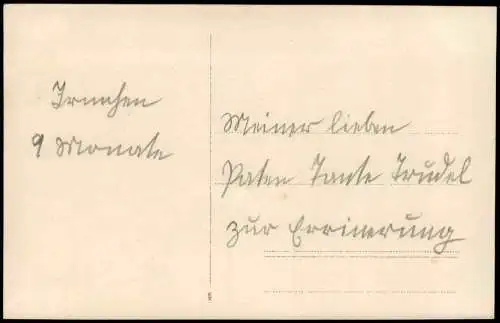 Irmchen
9 Monate
Meiner lieben
Paten Tante Trudel
zur Errinerung